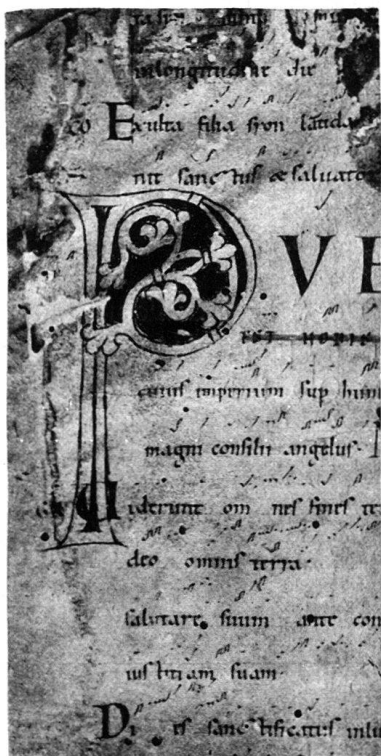 inlongitudine die
CO Exulta filia syon lauda
nit sanctus & saluator
PVE
EST NOBIS
cuius imperium sup hum
magni consilii angelus.
Viderunt om nes fines te
deo omnis terra.
salutare suum ante con
iustitiam suam.
Di es sanc tificatus inlu